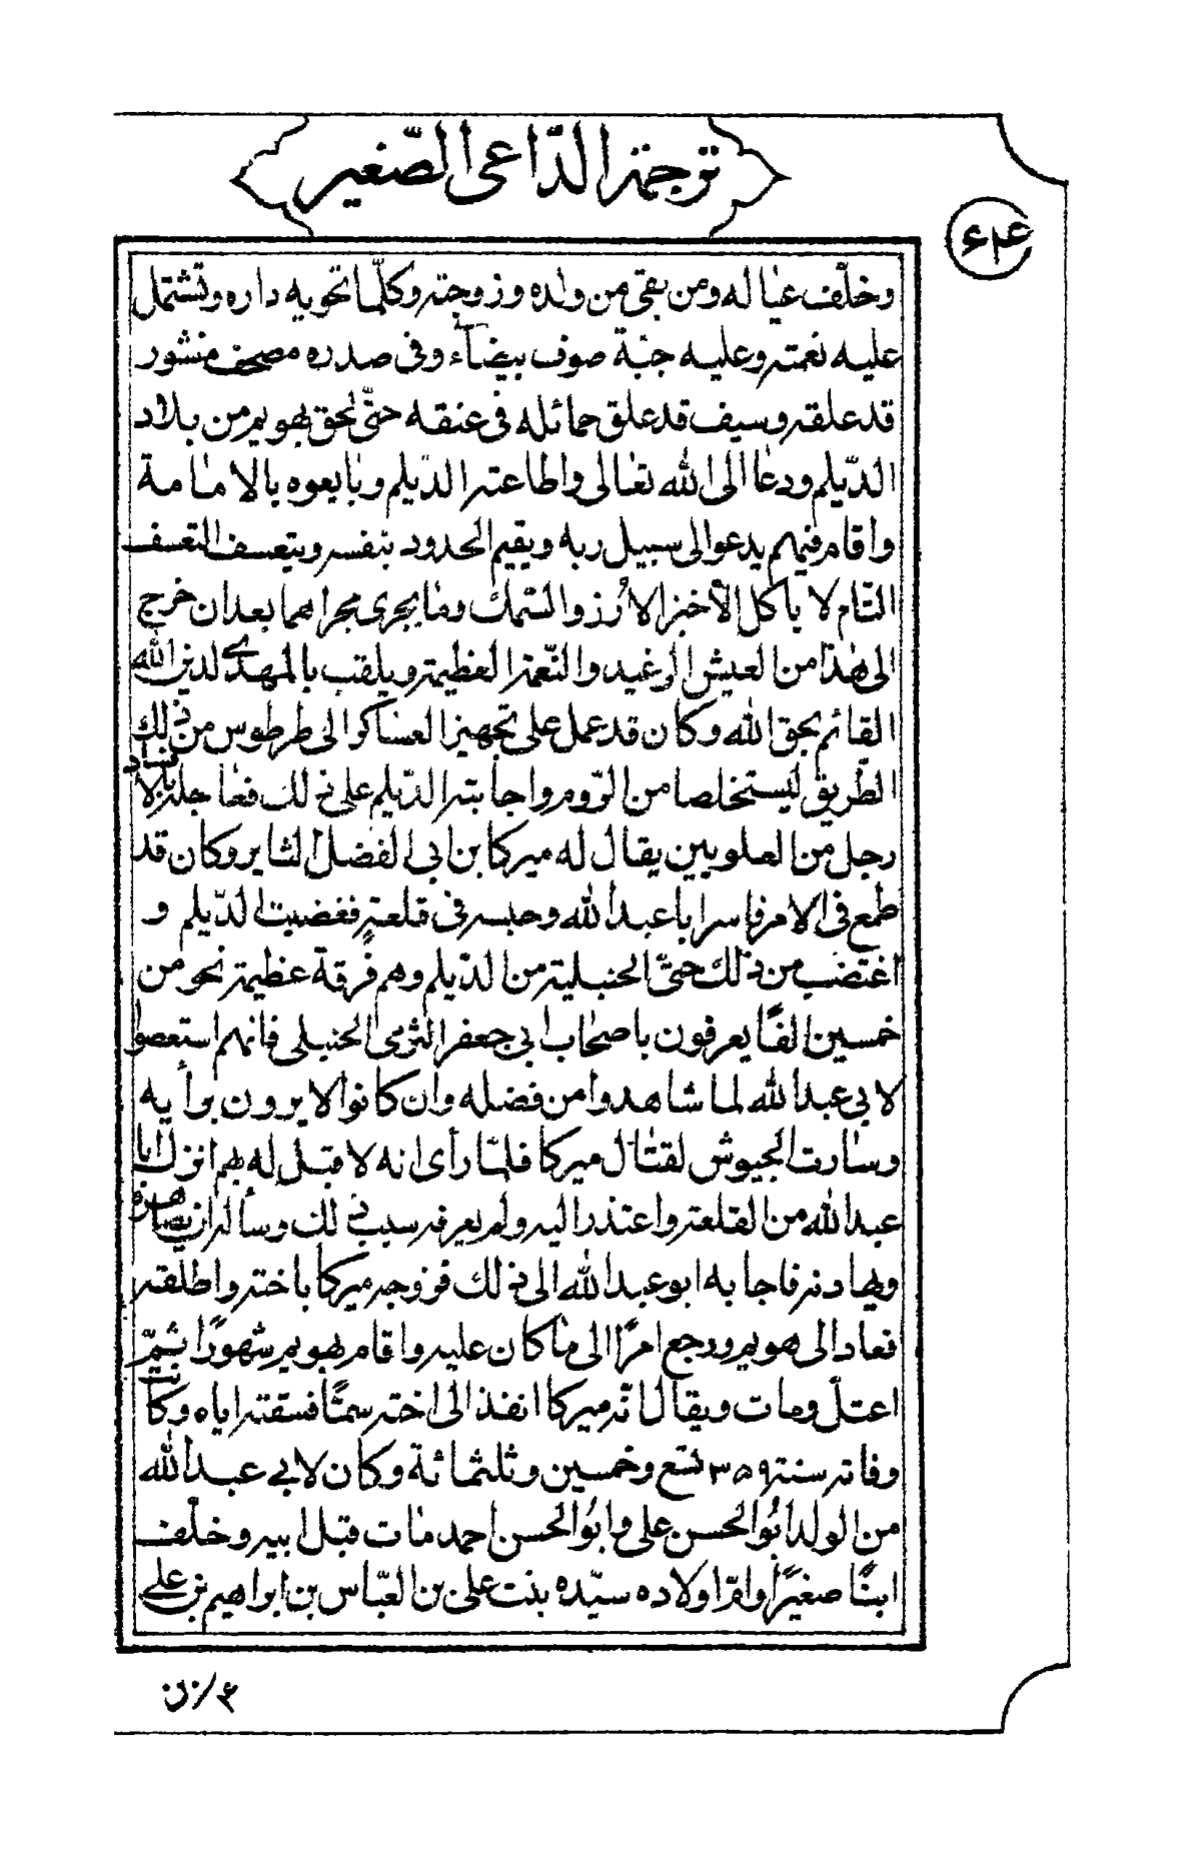 ترجمة الدّاعى الصّغير
٤٢٤
وخلّف عيا له ومن بقى من ولده وزوجته وكلّما تحويه داره وتشتمل
عليه نعمته وعليه جبّة صوف بيضآء وفى صدره مصحف منشور
قد علقه وسيف قد علق حمائله فى عنقه حتّى لحق بهويم من بلاد
الدّيلم ودعا الى الله تعالى واطاعته الدّيلم وبايعوه بالامامة
واقام فيهم يدعوالى سبيل ربه ويقيم الحدود بنفسه ويتعسف التعسف
التّام لا ياكل الّا خبز الارُز والسّمك وما يجرى مجراهما بعد ان خرج
الى هذا من العيش الرغيد والنّعمة العظيمة ويلقب بالمهدى لدين الله
القائم بحق الله وكان قد عمل على تجهيز العساكر الى طرطوس من ذلك
الطّريق ليستخلصا من الرّوم واجابته الدّيلم على ذلك فعاجله بالافساد
رجل من العلويين يقال له ميركا بن ابى الفضل الثاير وكان قد
طمع فى الامر فاسر ابا عبد الله وحبسه فى قلعةٍ فغضبت الدّيلم و
اغتضب من ذلك حتّى الحنبلية من الدّيلم وهم فرقة عظيمة نحو من
خمسين الفًا يعرفون باصحاب ابى جعفر الثرمى الحنبلى فانهم استعصوا
لابى عبد الله لما شاهدوا من فضله وان كانوا لا يرون برأيه
وسارت الجيوش لقتال ميركا فلمّا رأى انه لا قبل له بهم انزل ابا
عبد الله من القلعة واعتذر اليه ولم يعرفه سبب ذلك وسأله ان يصاهره
ويهادنه فاجابه ابو عبد الله الى ذلك فزوجه ميركا باخته واطلقته
فعاد الى هويم ورجع امرًا الى ما كان عليه واقام بهويم شهورًا ثمّ
اعتلّ ومات ويقال انّه ميركا انفذ الى اخته سمًّا فسقته اياه وكانت
وفاته سنة ٣٥٩ تسع وخمسين وثلثمائة وكان لابى عبد الله
من الولد ابُو الحسن على وابُو الحسن احمد مات قبل ابيه وخلّف
ابنًا صغيرًا وامّ اولاده سيّده بنت على بن العبّاس بن ابراهيم بن على